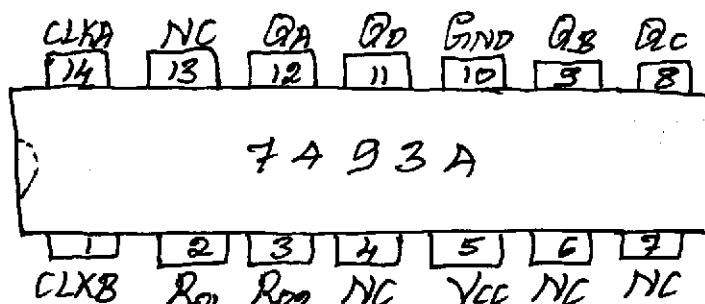 CLKA NC QA QD GND QB QC
14 13 12 11 10 9 8
7493A
1 2 3 4 5 6 7
CLKB R01 R02 NC VCC NC NC